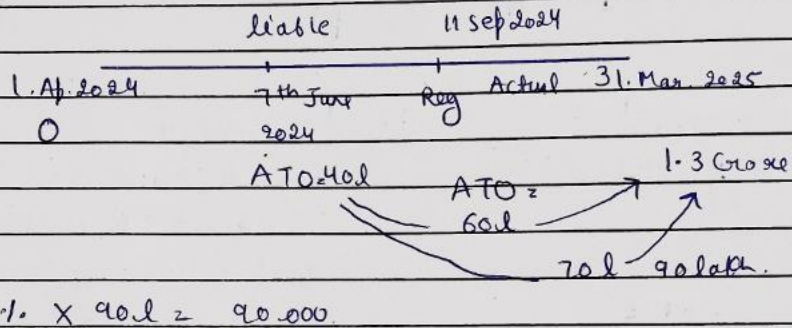 liable 11 Sep 2024
1. Ap. 2024 7th June Reg Actual 31. Mar. 2025
0 2024
ATO=40l ATO = 1.3 Crore
60l
70l 90lakh.
%. X 90l = 90.000